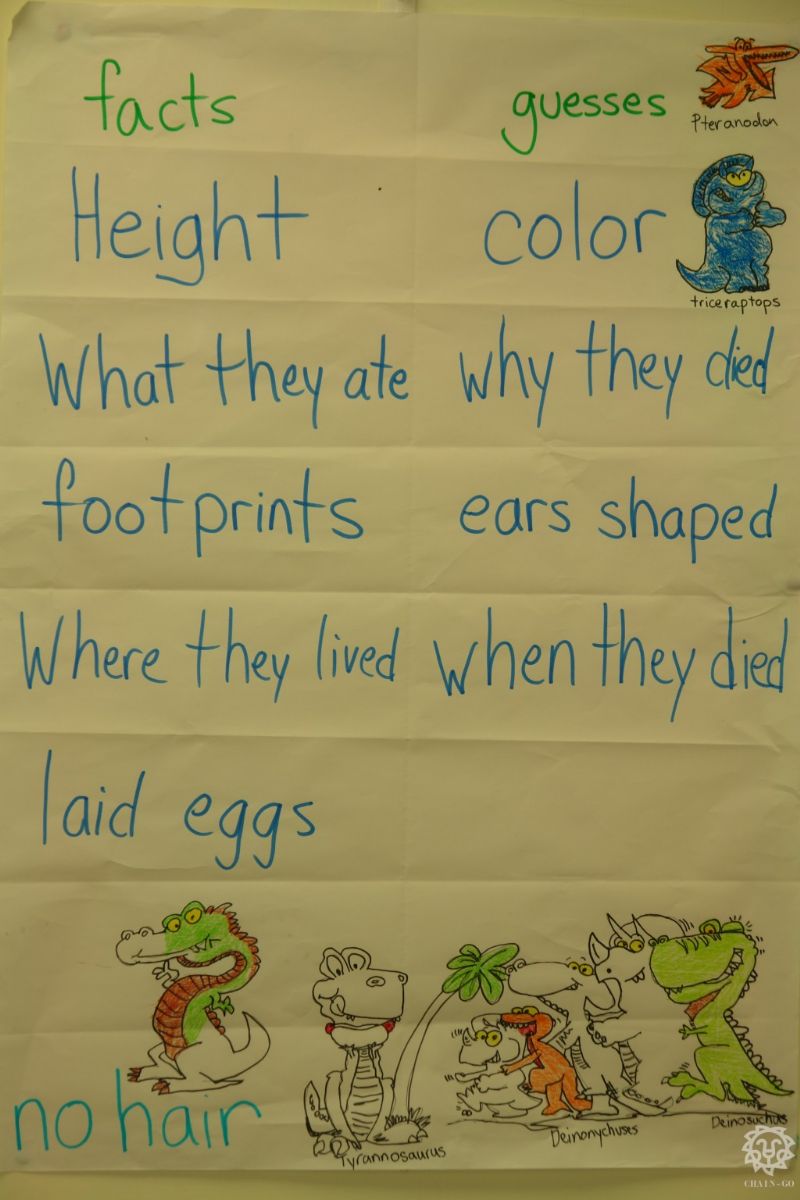 facts guesses
Pteranodon
Height color
triceraptops
What they ate why they died
footprints ears shaped
Where they lived when they died
laid eggs
no hair
Tyrannosaurus
Deinonychuses
Deinosuchus
CHAIN-GO